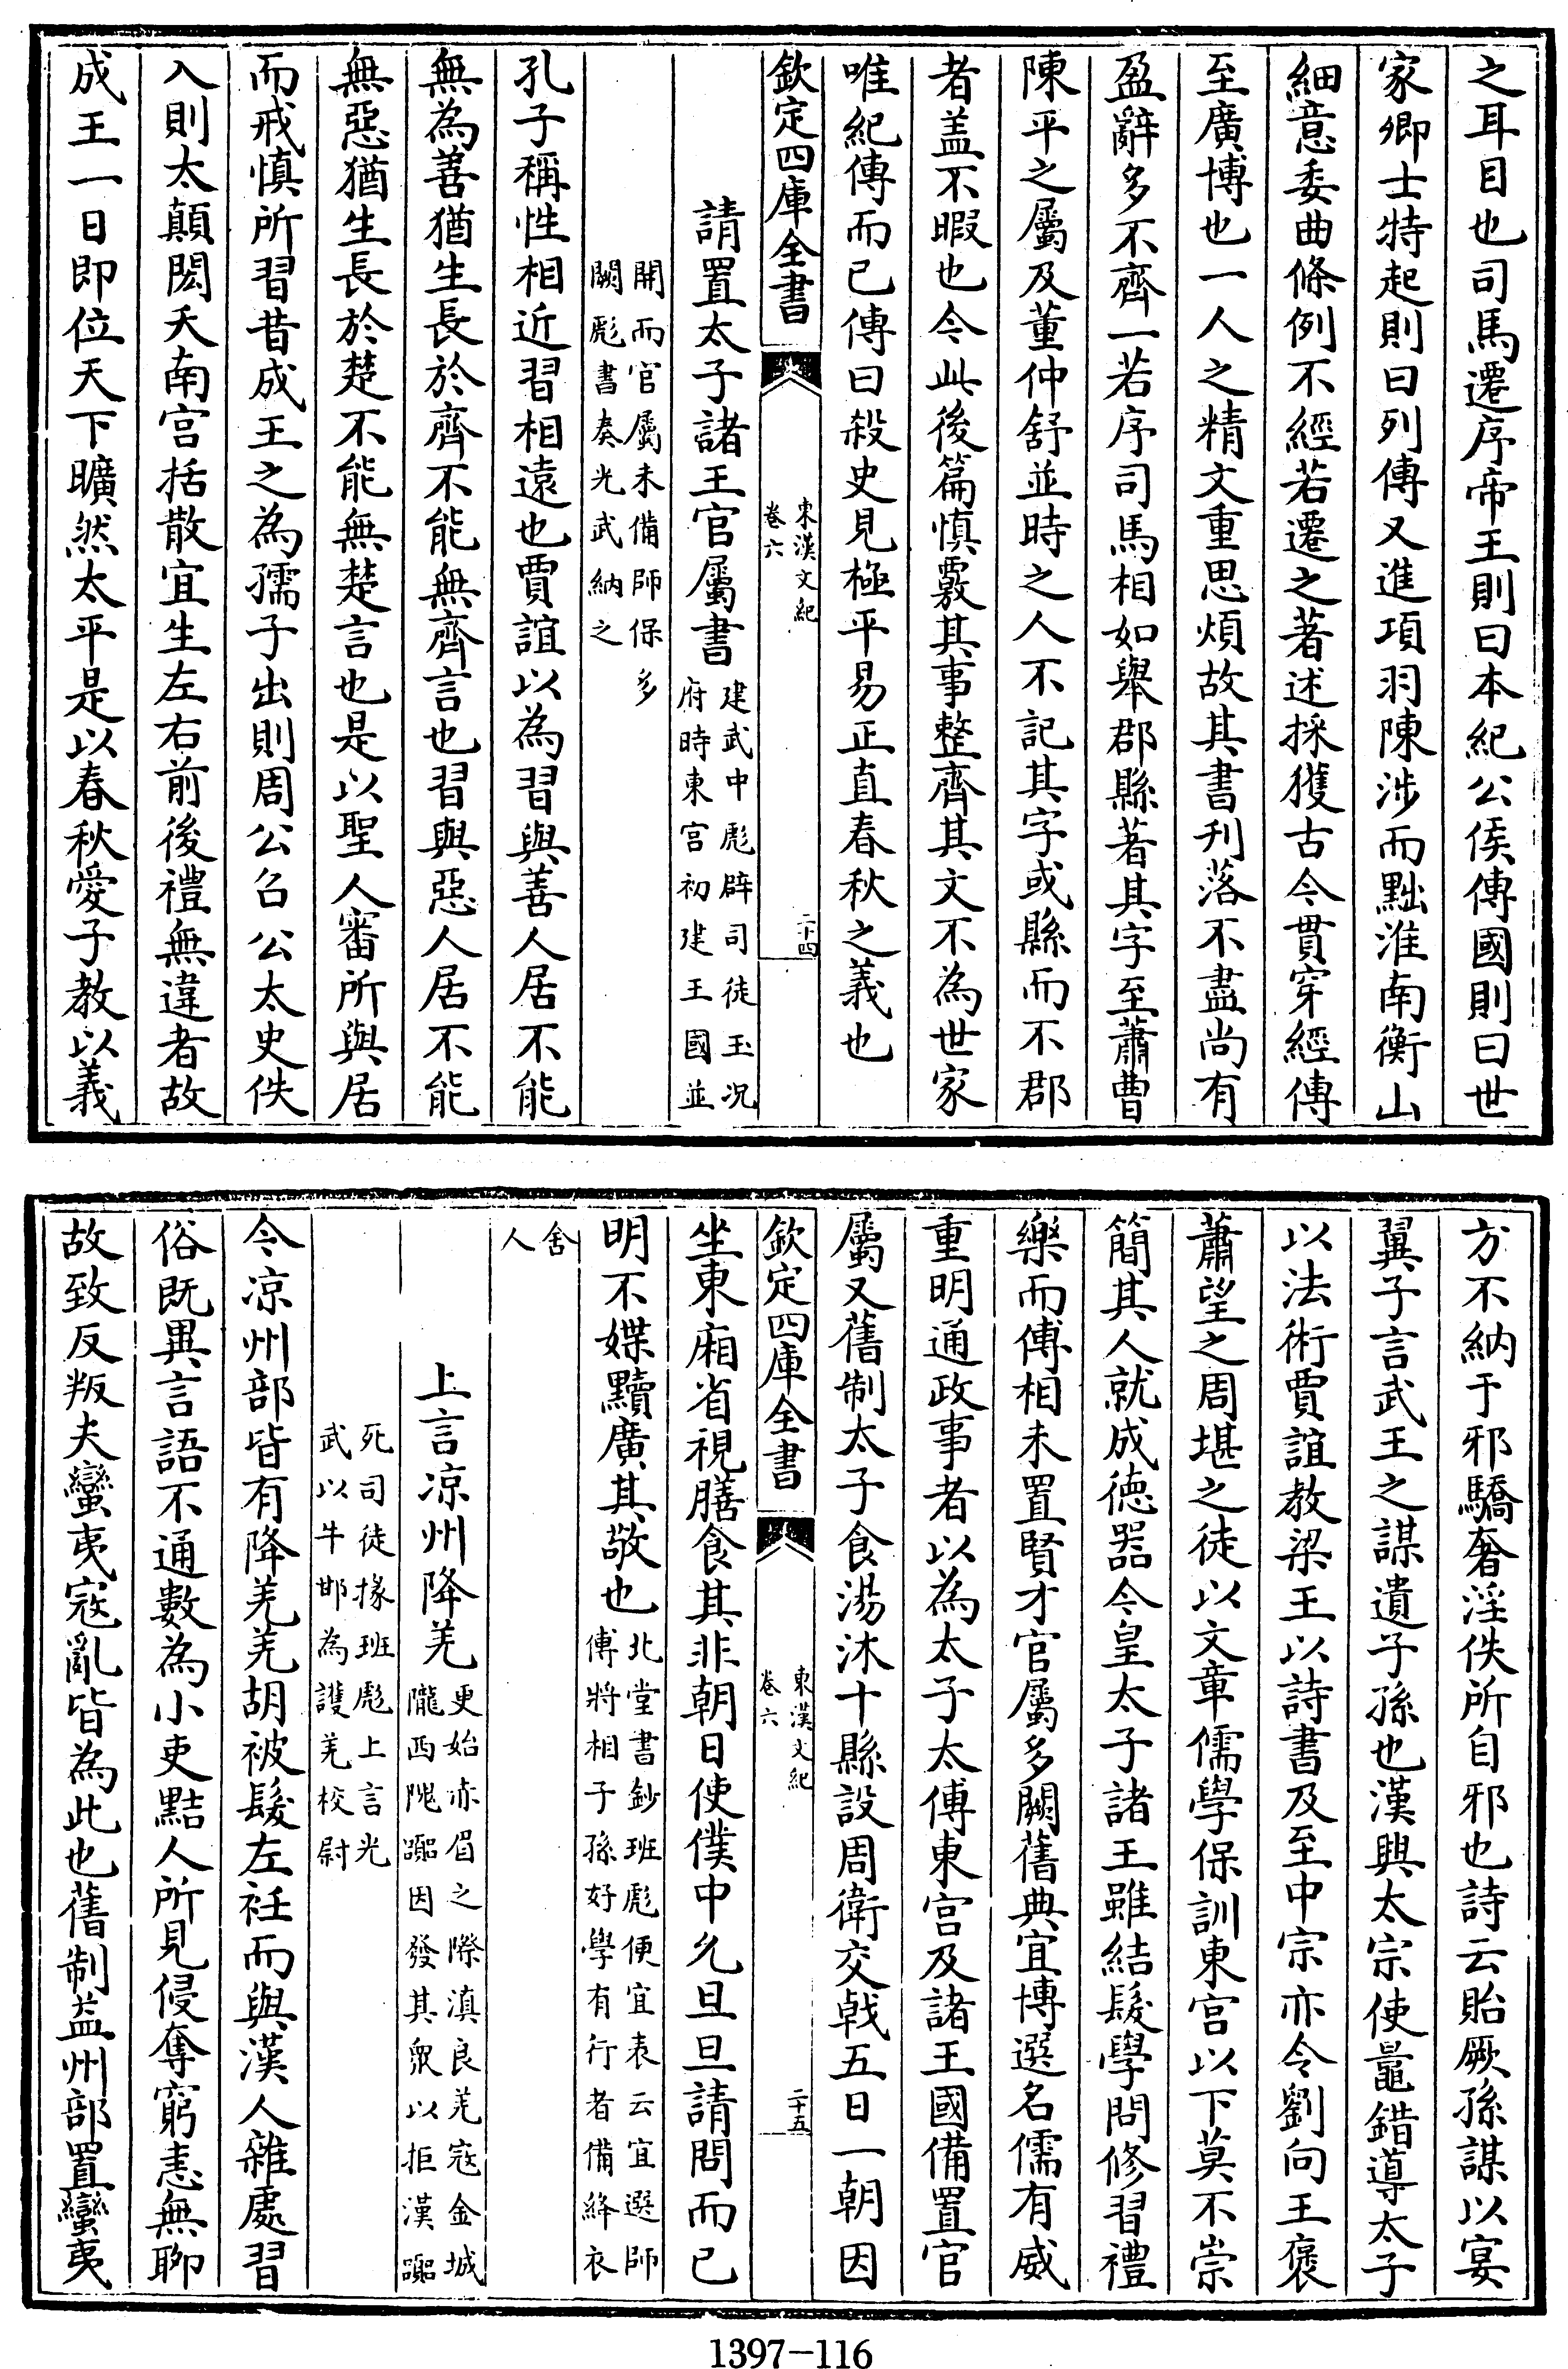 之耳目也司馬遷序帝王則曰本紀公侯傳國則曰世
家卿士特起則曰列傳又進項羽陳涉而黜淮南衡山
細意委曲條例不經若遷之著述採獲古今貫穿經傳
至廣博也一人之精文重思煩故其書刋落不盡尚有
盈辭多不齊一若序司馬相如舉郡縣著其字至蕭曹
陳平之屬及董仲舒並時之人不記其字或縣而不郡
者盖不暇也今此後篇慎覈其事整齊其文不為世家
唯紀傳而已傳曰殺史見極平易正直春秋之義也
欽定四庫全書
東漢文紀
卷六
二十四
請置太子諸王官屬書
建武中彪辟司徒玉况
府時東宫初建王國並
開而官屬未備師保多
闕彪書奏光武納之
孔子稱性相近習相遠也賈誼以為習與善人居不能
無為善猶生長於齊不能無齊言也習與惡人居不能
無惡猶生長於楚不能無楚言也是以聖人審所與居
而戒慎所習昔成王之為孺子出則周公召公太史佚
入則太顛閎夭南宫括散宜生左右前後禮無違者故
成王一日即位天下曠然太平是以春秋愛子教以義
方不納于邪驕奢淫佚所自邪也詩云貽厥孫謀以宴
翼子言武王之謀遺子孫也漢興太宗使鼂錯導太子
以法術賈誼教梁王以詩書及至中宗亦令劉向王褒
蕭望之周堪之徒以文章儒學保訓東宫以下莫不崇
簡其人就成德器今皇太子諸王雖結髮學問修習禮
樂而傅相未置賢才官屬多闕舊典宜博選名儒有威
重明通政事者以為太子太傅東宫及諸王國備置官
屬又舊制太子食湯沐十縣設周衛交戟五日一朝因
欽定四庫全書
東漢文紀
卷六
二十五
坐東廂省視膳食其非朝日使僕中允旦旦請問而已
明不媟黷廣其敬也
北堂書鈔班彪便宜表云宜選師
傅將相子孫好學有行者備絳衣
舍
人
上言凉州降羌
更始赤眉之際滇良羌寇金城
隴西隗嚻因發其衆以拒漢嚻
死司徒掾班彪上言光
武以牛邯為護羌校尉
今凉州部皆有降羌羌胡被髮左衽而與漢人雜處習
俗既異言語不通數為小吏黠人所見侵奪窮恚無聊
故致反叛夫蠻夷寇亂皆為此也舊制益州部置蠻夷
1397-116